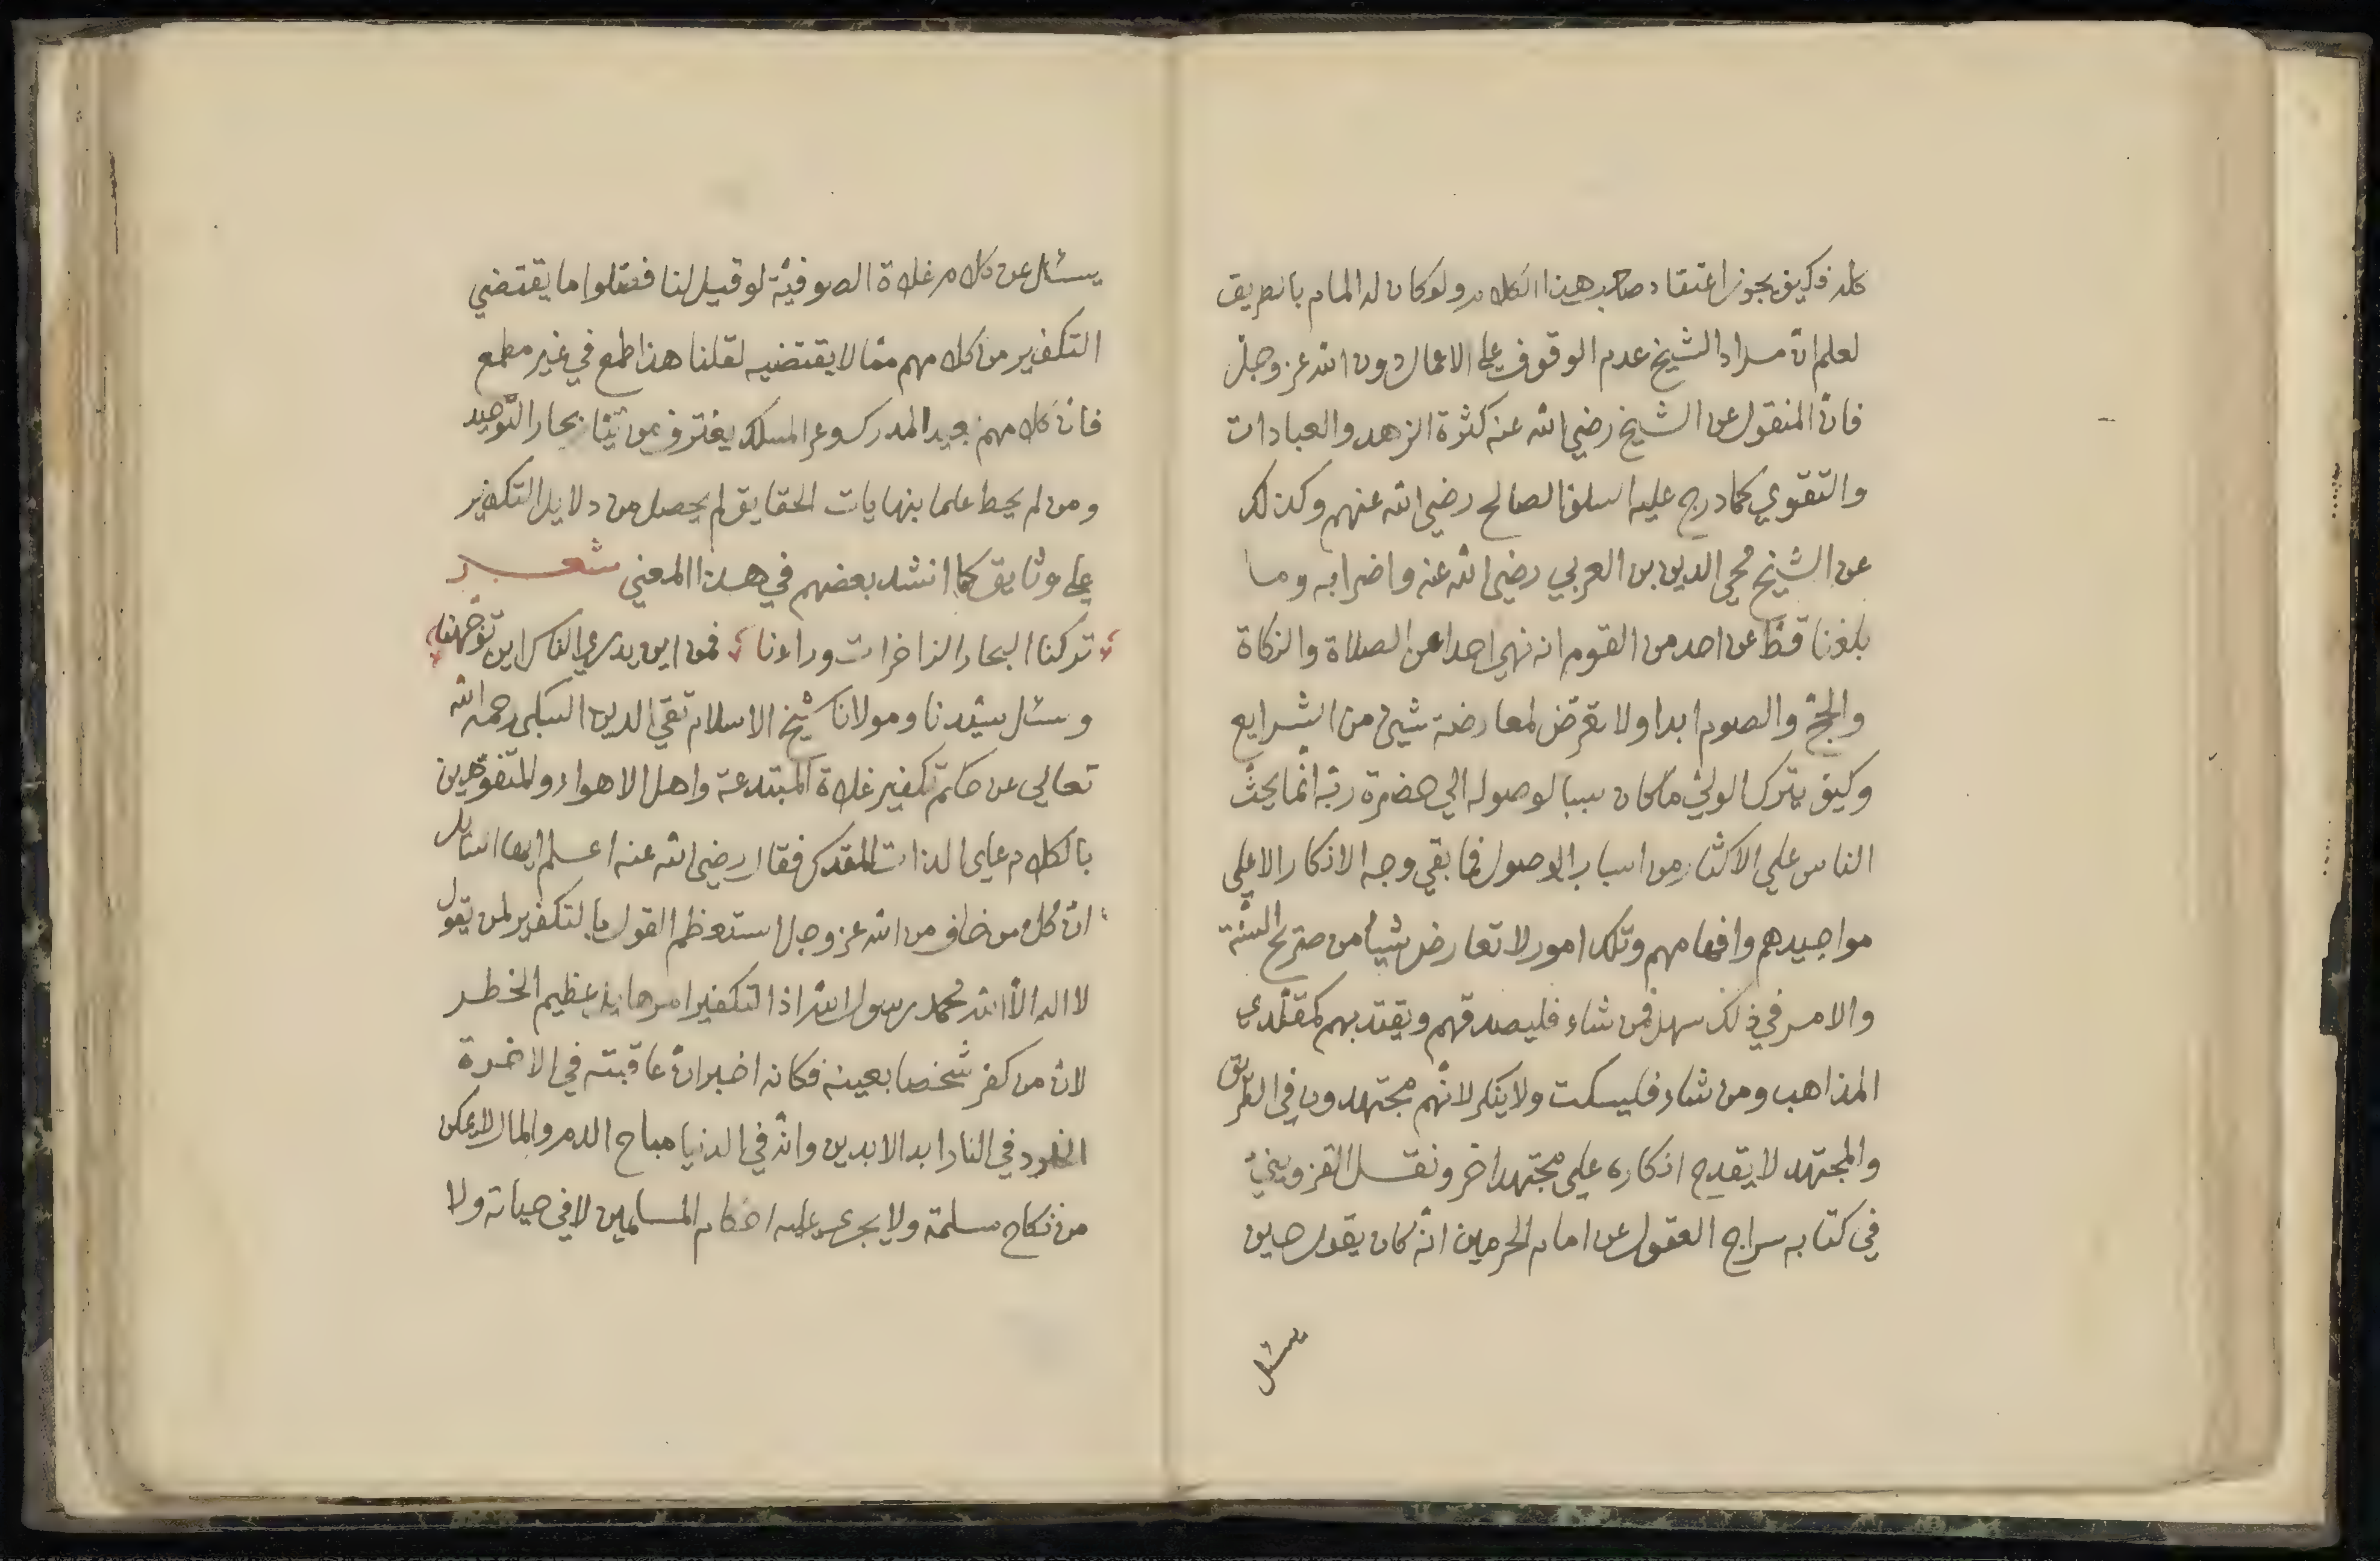 كله فكيف يجوز اعتقاد صاحب هذا الكلام ولو كان له المام بالطريق
لعلم ان مراد الشيخ عدم الوقوف على الاعمال دون الله عز وجل
فان المنقول عن الشيخ رضي الله عنه كثرة الزهد والعبادات
والتقوي كما درج عليه السلف الصالح رضي الله عنهم وكذلك
عن الشيخ محي الدين بن العربي رضي الله عنه واضرابه وما
بلغنا قط عن احد من القوم انه نهي احدا عن الصلاة والزكاة
والحج والصوم ابدا ولا تعرض لمعارضة شيئ من الشرايع
وكيف يترك الولي ما كان سببا لوصوله الي حضرة ربه انما يحث
الناس علي الاكثار من اسباب الوصول فما بقي وجه الانكار الا علي
مواجيدهم وافهامهم وتلك امور لا تعارض شيا من صريح السنة
والامر في ذلك سهل فمن شاء فليصدقهم ويقتد بهم كمقلدي
المذاهب ومن شاء فليسكت ولا ينكر لانهم مجتهدون في الطريق
والمجتهد لا يقدح انكاره علي مجتهد اخر ونقل القزويني
في كتابه سراج العقول عن امام الحرمين انه كان يقول حين
يسئل
يسئل عن كلام غلاة الصوفية لو قيل لنا فصلوا ما يقتضي
التكفير من كلامهم مما لا يقتضيه لقلنا هذا طمع في غير مطمع
فان كلامهم بعيد المدرك وعر المسلك يغترف من تيار بحار التوحيد
ومن لم يحط علما بنهايات الحقايق لم يحصل من دلايل التكفير
علي وثايق كما انشد بعضهم في هذا المعني شعر
تركنا البحار الزاخرات وراءنا فمن اين يدري الناس اين توجهنا
وسئل سيدنا ومولانا شيخ الاسلام تقي الدين السبكي رحمه الله
تعالي عن حكم تكفير غلاة المبتدعة واهل الاهواء والمتفوهين
بالكلام علي الذات المقدس فقال رضي الله عنه اعلم ايها السائل
ان كل من خاف من الله عز وجل استعظم القول بالتكفير لمن يقول
لا اله الا الله محمد رسول الله اذ التكفير امر هايل عظيم الخطر
لان من كفر شخصا بعينه فكانه اخبر ان عاقبته في الاخرة
الخلود في النار ابد الابدين وانه في الدنيا مباح الدم والمال لا يمكن
من نكاح مسلمة ولا يجري عليه احكام المسلمين لا في حياته ولا